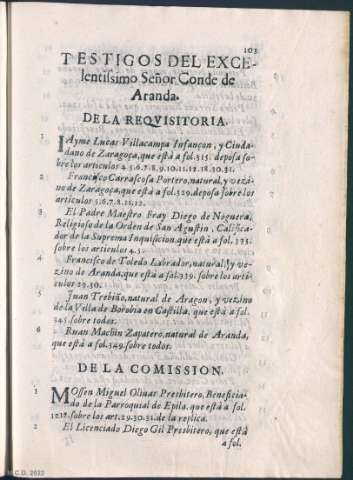 103
TESTIGOS DEL EXCE-
lentissimo Señor Conde de
Aranda.
DE LA REQVISITORIA.
1 IAyme Lucas Villacampa Infançon, y Ciuda-
dano de Zaragoça, que está a fol. 315. deposa so-
bre los articulos 4.5.6.7.8.9.10.11.12.18.30.31.
2 Francisco Carrascosa Portero, natural, y vezi-
no de Zaragoça, que está a fol. 329. deposa sobre los
articulos 5.6.7.8.11.12.
3 El Padre Maestro Fray Diego de Noguera,
Religioso de la Orden de San Agustin, Califica-
dor de la Suprema Inquisicion, que está a fol. 335.
sobre los articulos 4.5.
4 Francisco de Toledo Labrador, natural, y ve-
zino de Aranda, que está a fol. 339. sobre los arti-
culos 29.30.
5 Juan Trebiño, natural de Aragon, y vezino
de la Villa de Borobia en Castilla, que está a fol.
345. sobre todos.
6 Ruan Machin Zapatero, natural de Aranda,
que está a fol. 349. sobre todos.
DE LA COMISSION.
1 MOssen Miguel Oliuar Presbitero, Beneficia-
do de la Parroquial de Epila, que está a fol.
1218. sobre los art. 29.30.31. de la replica.
2 El Licenciado Diego Gil Presbitero, que está
a fol.
C.D. 2022